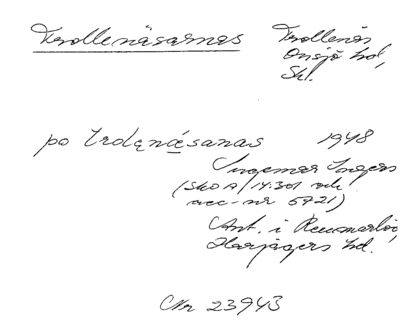 Trollenäsarnas Trollenäs
Onsjö hd,
Sk.
po trolęnæsanas 1948
Ingemar Ingers
(Sko A/14:301 och
acc-nr 5721)
Ant. i Remmarlöv,
Harjagers hd.
CNr 23943